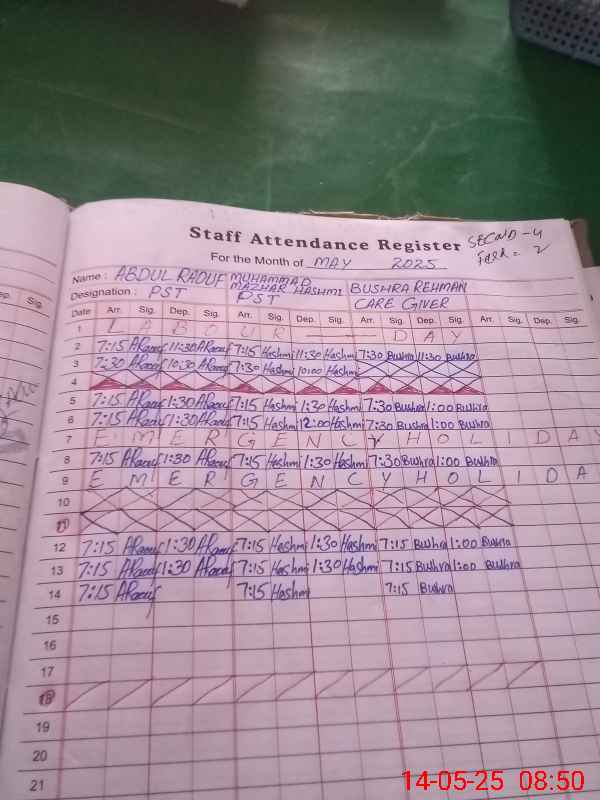 Staff Attendance Register
SECOND - 4
For the Month of MAY 2025
Name : ABDUL RAOUF MUHAMMAD MAZHAR HASHMI BUSHRA REHMAN
Designation : PST PST CARE GIVER
ep. Sig.
Date Arr. Sig. Dep. Sig. Arr. Sig. Dep. Sig. Arr. Sig. Dep. Sig. Arr. Sig. Dep. Sig.
1 LABOUR DAY
2 7:15 ARaouf 11:30 ARaouf 7:15 Hashmi 11:30 Hashmi 7:30 Bushra 11:30 Bushra
3 7:30 ARaouf 10:30 ARaouf 7:30 Hashmi 10:00 Hashmi
4
5 7:15 ARaouf 1:30 ARaouf 7:15 Hashmi 1:30 Hashmi 7:30 Bushra 1:00 Bushra
6 7:15 ARaouf 1:30 ARaouf 7:15 Hashmi 12:00 Hashmi 7:30 Bushra 1:00 Bushra
7 EMERGENCY HOL DAY
8 7:15 ARaouf 1:30 ARaouf 7:15 Hashmi 1:30 Hashmi 7:30 Bushra 1:00 Bushra
9 EMERGENCY HOLIDA
10
11
12 7:15 ARaouf 1:30 ARaouf 7:15 Hashmi 1:30 Hashmi 7:15 Bushra 1:00 Bushra
13 7:15 ARaouf 1:30 ARaouf 7:15 Hashmi 1:30 Hashmi 7:15 Bushra 1:00 Bushra
14 7:15 ARaouf 7:15 Hashmi 7:15 Bushra
15
16
17
18
19
20
21
14-05-25 08:50